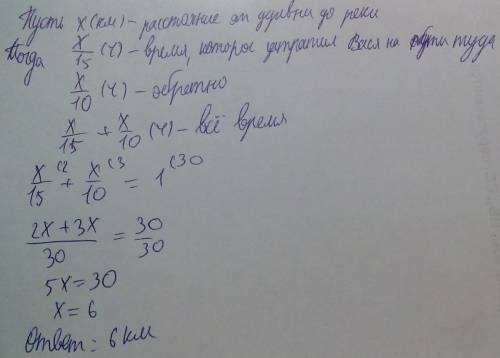 Пусть x (км) – расстояние от деревни до реки
Тогда x/15 (ч) – время, которое затратил Вася на пути туда
x/10 (ч) – обратно
x/15 + x/10 (ч) – всё время
x/15 (2 + x/10 (3 = 1 (30
2x + 3x / 30 = 30/30
5x = 30
x = 6
Ответ: 6 км